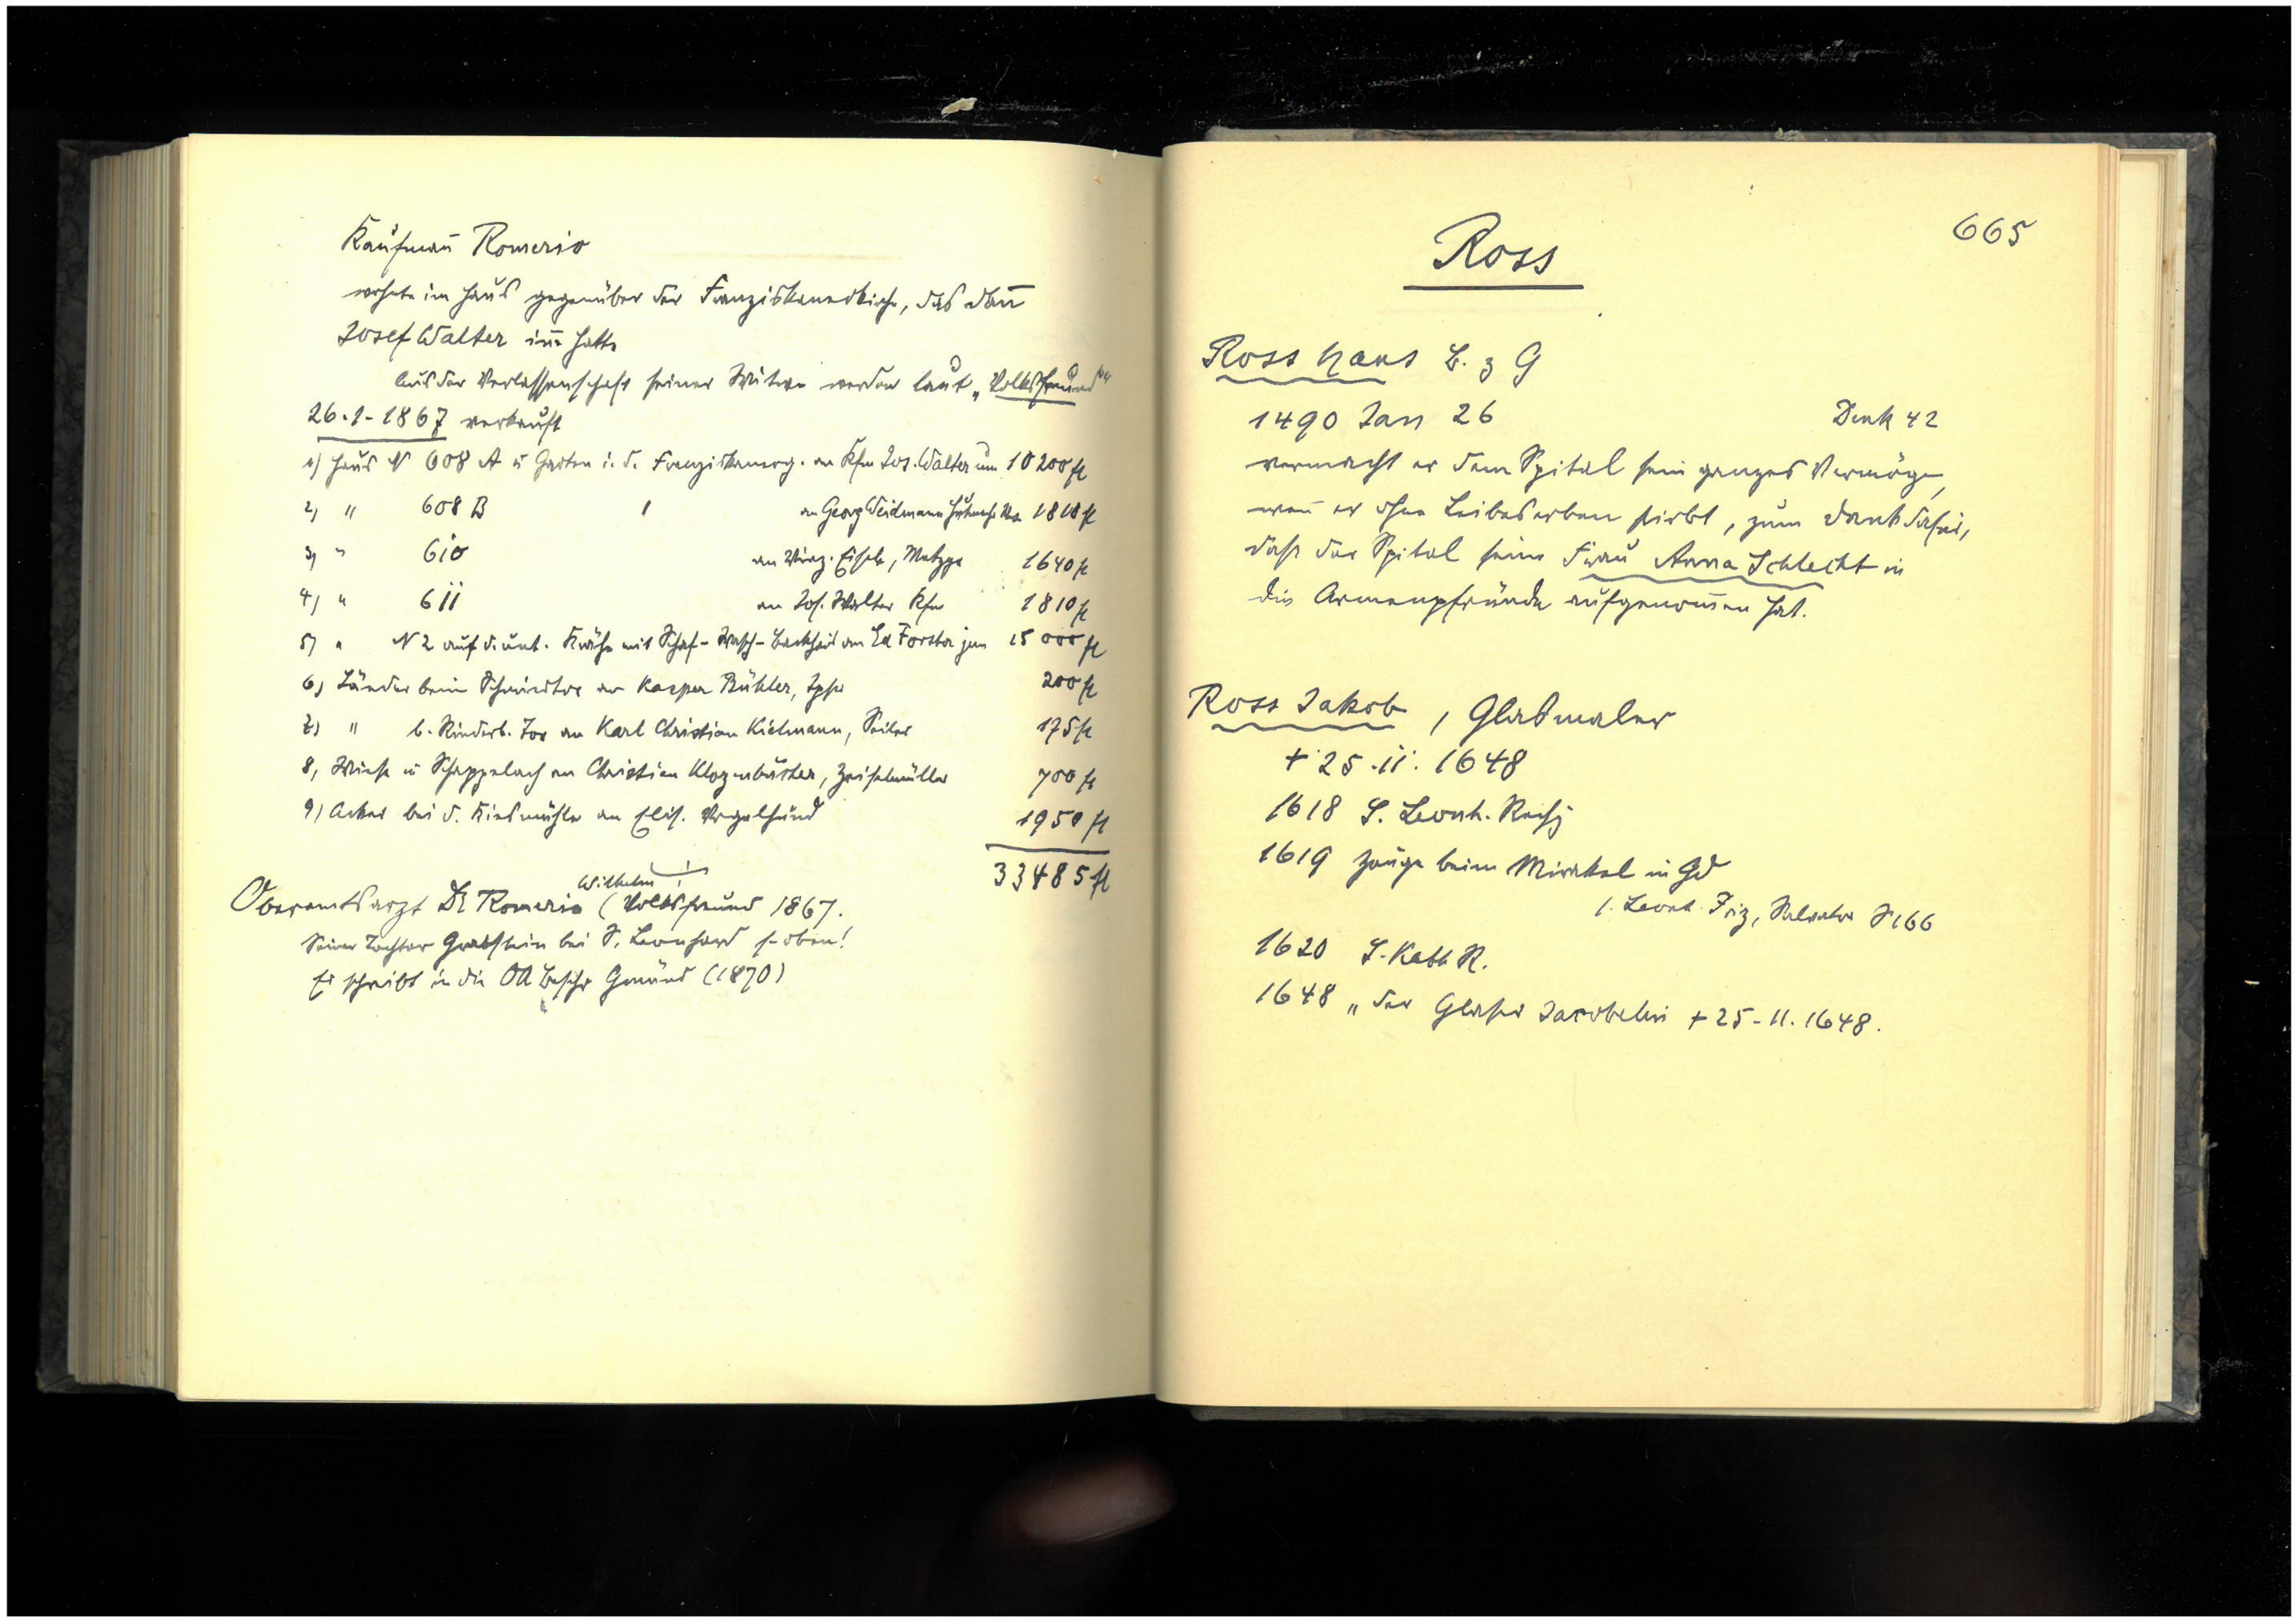 Kaufmañ Romerio
wohnte im Haus gegenüber der Franziskanerkirche, das dañ
Josef Walter iñe hatte
Aus der Verlassenschaft seiner Witwe werden laut „Volksfreund“
26.1-1867 verkauft
1) Haus N 608 A u Garten i. d. Franziskanerg. an Kfm Jos. Walter um 10200 fl
2) " 608 B " an Georg Weidmann 1810 fl
3) " 610 an Virg. Eisele, Metzger 1640 fl
4) " 611 an Jos. Walter Kfm 1810 fl
5) " N 2 auf d. unt. Krähe mit Schaf- Wasch- Backhaus an Ed Forster jun 15000 fl
6) Länder beim Schmiedtor an Kaspar Bühler, Ipser 200 fl
7) " b. Rinderb. Tor an Karl Christian Kielmann, Seiler 175 fl
8) Wiese u Schappelach an Christian Klozenbücher, Zeiselmüller 700 fl
9) Acker bei d. Kiesmühle an Elis. Vogelhund 1950 fl
33485 fl
Wilhelm
Oberamtsarzt Dr Romerio (Volksfreund 1867.
Seiner Tochter Grabstein bei S. Leonhard s. oben!
Er schreibt in die OA Beschr Gmünd (1870)
665
Ross
Ross Hans B. z G
1490 Jan 26 Denk 42
vermacht er dem Spital sein ganzes Vermögen,
weñ er ohne Leibeserben stirbt, zum Dank dafür,
dass der Spital seine Frau Anna Schlecht in
die Armenpfründe aufgenom̄en hat.
Ross Jakob, Glasmaler
+ 25.11.1648
1618 S. Leonh. Rechg
1619 Zeuge beim Mirakel in Gd
s. Leonh. Friz, Salvator S 166
1620 S. Kath R.
1648 „der Glaser Jacobelin + 25-11.1648.